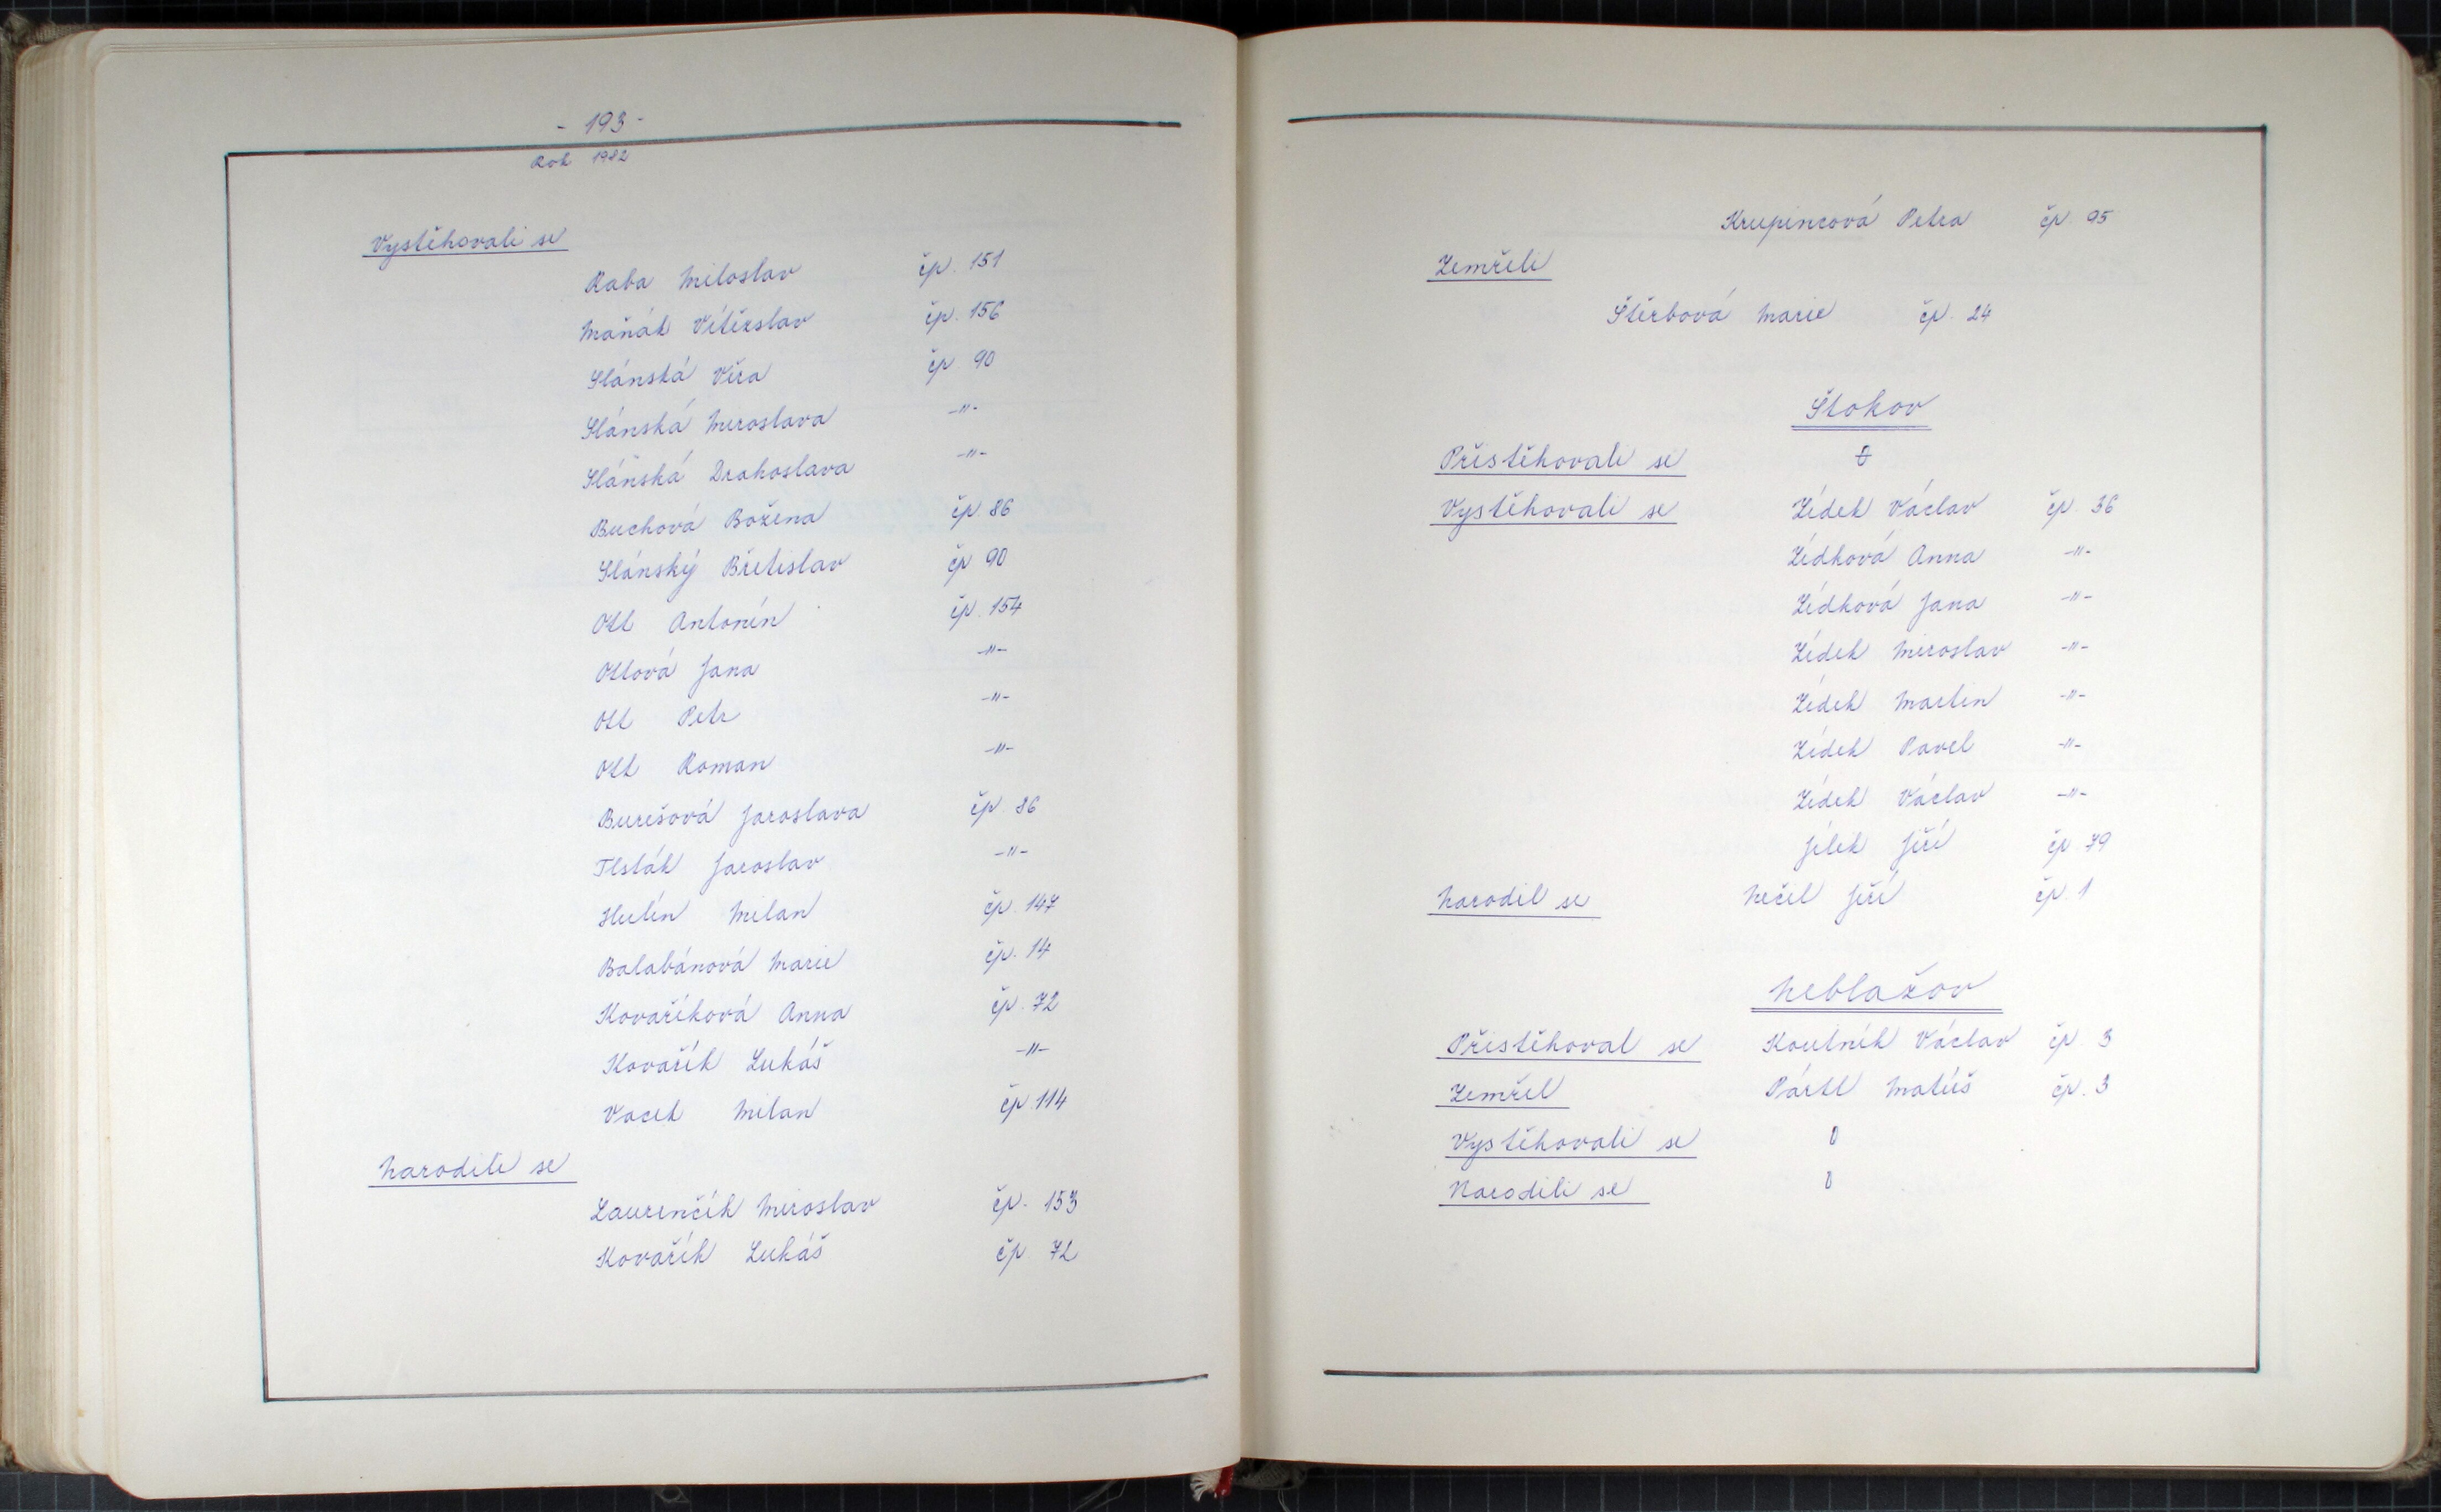 - 193 -
Rok 1982
Vystěhovali se
Raba Miloslav čp. 151
Maňák Vítězslav čp. 156
Slánská Věra čp 90
Slánská Miroslava -"-
Slánská Drahoslava -"-
Buchová Božena čp 86
Slánský Břetislav čp 90
Ott Antonín čp. 154
Ottová Jana -"-
Ott Petr -"-
Ott Roman -"-
Burešová Jaroslava čp. 86
Tlsták Jaroslav -"-
Hulín Milan čp. 147
Balabánová Marie čp. 14
Kovaříková Anna čp. 72
Kovařík Lukáš -"-
Vacek Milan čp 114
Narodili se
Laurenčík Miroslav čp. 153
Kovařík Lukáš čp. 72
Krupincová Petra čp. 95
Zemřeli
Štěrbová Marie čp. 24
Štokov
Přistěhovali se 0
Vystěhovali se Zídek Václav čp. 36
Zídková Anna -"-
Zídková Jana -"-
Zídek Miroslav -"-
Zídek Martin -"-
Zídek Pavel -"-
Zídek Václav -"-
Jílek Jiří čp 79
Narodil se Nečil Jiří čp. 1
Neblažov
Přistěhoval se Koutník Václav čp. 3
Zemřel Pártl Matúš čp. 3
Vystěhovali se 0
Narodili se 0